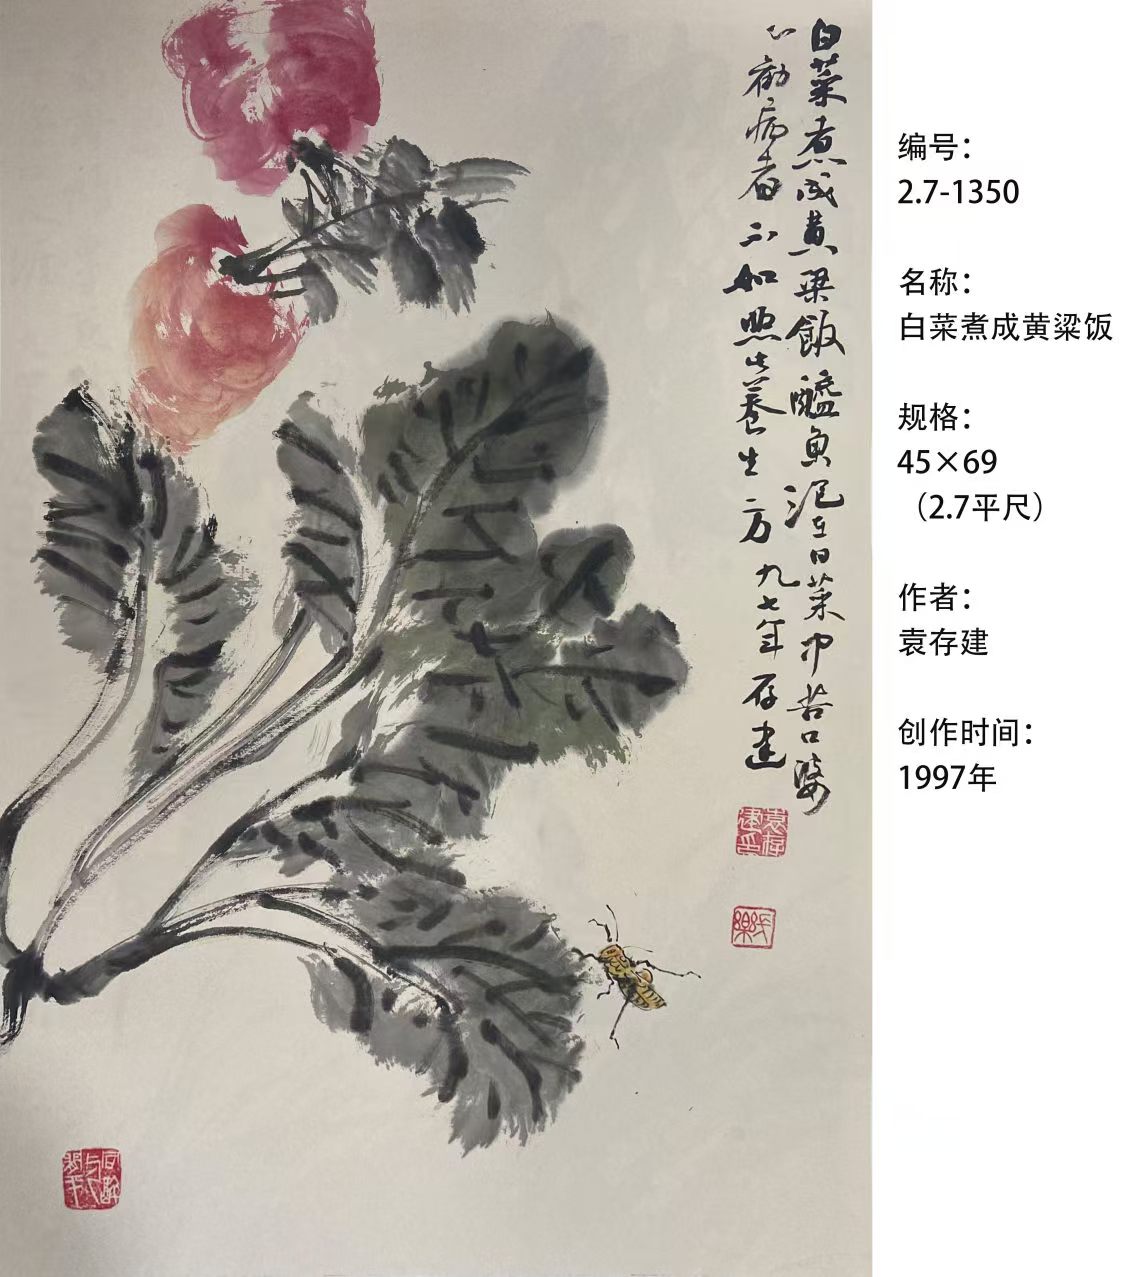 白菜煮成黄粱飯魚泥在白菜中苦口婆
心勸病者不如照此養生方 九七年 存建
袁存建印
编号：
2.7-1350
名称：
白菜煮成黄粱饭
规格：
45×69
（2.7平尺）
作者：
袁存建
创作时间：
1997年